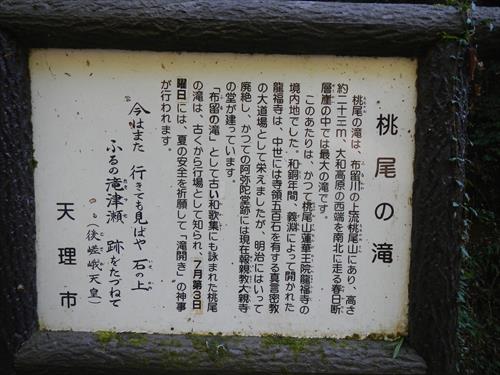 桃尾の滝
桃尾の滝は、布留川の上流桃尾山にあり、高さ
約二十三m、大和高原の西端を南北に走る春日断
層崖の中では最大の滝です。
このあたりは、かつて桃尾山蓮華王院龍福寺の
境内地でした。和銅年間、義淵によって開かれた
龍福寺は、中世には寺領五百石を有する真言密教
の大道場として栄えましたが、明治にはいって
廃絶し、かつての阿弥陀堂跡には現在報親教大親寺
の堂が建っています。
「布留の滝」として古い和歌集にも詠まれた桃尾
の滝は、古くから行場として知られ、7月第3日
曜日には、夏の安全を祈願して「滝開き」の神事
が行われます。
今はまた 行きても見ばや 石の上
ふるの滝津瀬 跡をたづねて
(後嵯峨天皇)
天理市